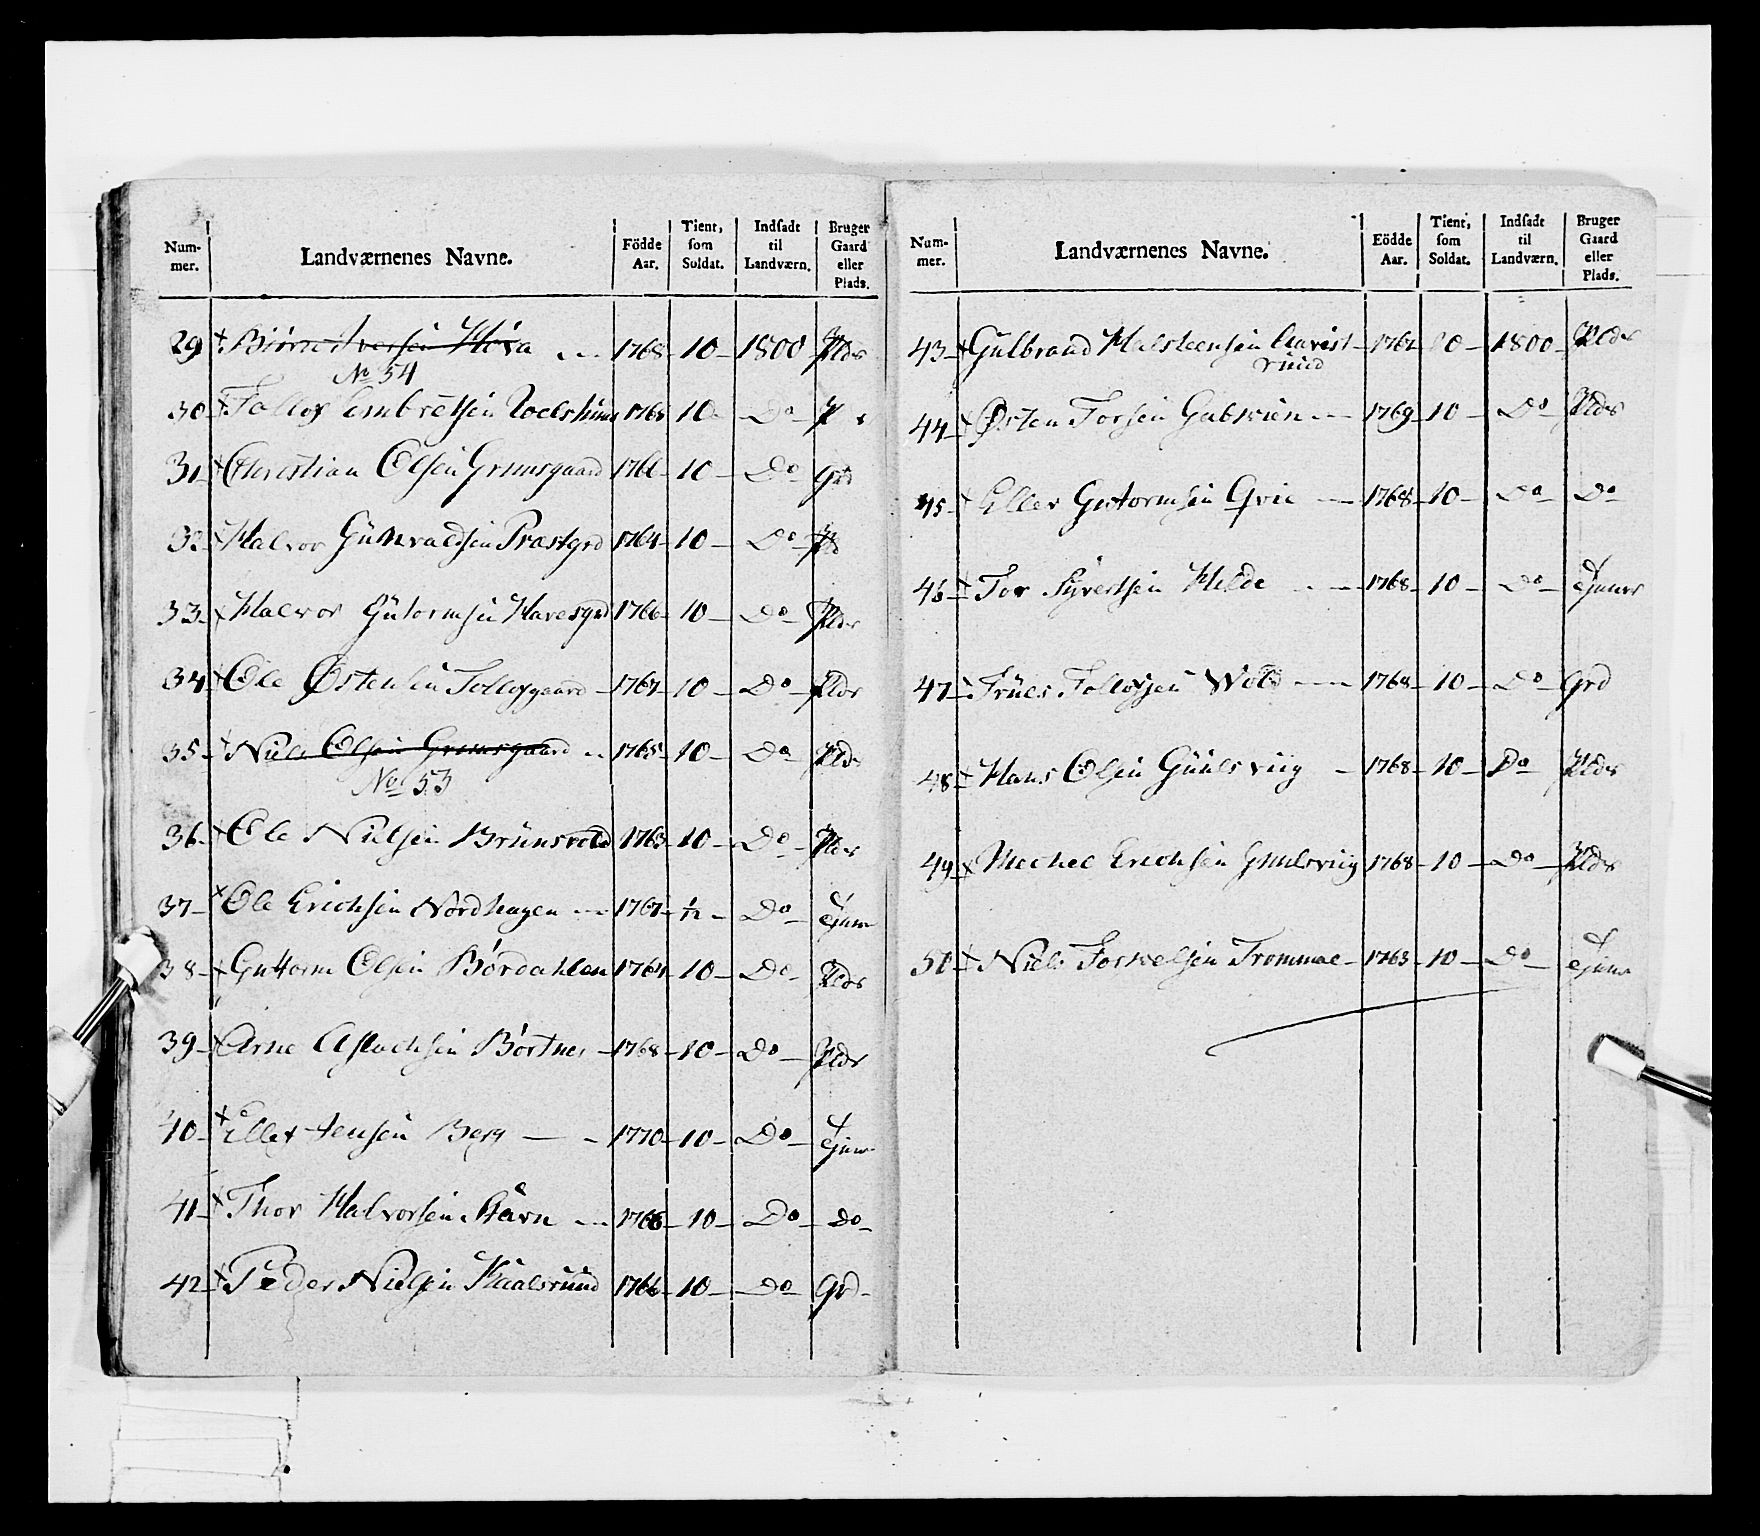 Num-mer. Landværnenes Navne. Födde Aar. Tient, som Soldat. Indsadt til Landværn. Bruger Gaard eller Plads.
29 Biörn Iversen Höva 1768 10 1800 Pldr
No 54
30 Tollof Embretsen 1768 10 Do
31 Christian Olsen Grimsgaard 1766 10 Do Grd
32 Halvor Gunvaldsen Præstgrd 1764 10 Do
33 Halvor Gutormsen Havesgrd 1766 10 Do Pldr
34 Ole Østensen Tollefsgaard 1767 10 Do Pldr
35 Niels Olsen Grimsgaard 1765 10 Do Pldr
No 53
36 Ole Nielsen Brunsvold 1763 10 Do Pldr
37 Ole Erichsen Nordhagen 1767 1/12 Do Tjene
38 Guttorm Olsen Børdahlen 1764 10 Do Pldr
39 Arne Aslachsen Børtnes 1768 10 Do Pldr
40 Ellef Jensen Berg 1770 10 Do Tjene
41 Thor Halvorsen 1766 10 Do Do
42 Peder Nielsen Kaalsruud 1766 10 Do Grd
Num-mer. Landværnenes Navne. Eödde Aar. Tient, som Soldat. Indsadt til Landværn. Bruger Gaard eller Plads.
43 Gulbrand Halsteensen 1767 10 1800 Pldr
ruud
44 Østen Torsen 1769 10 Do Pldr
45 Ellev Gutormsen Qvie 1768 10 Do Do
46 Tor Syvertsen Hilde 1768 10 Do Tjener
47 Truls Tollefsen Wold 1768 10 Do Grd
48 Hans Olsen Guulsviig 1768 10 Do Pldr
49 Michel Erichsen Guulsviig 1768 10 Do Pldr
50 Niels Torkelsen Trommae 1763 10 Do Tjene